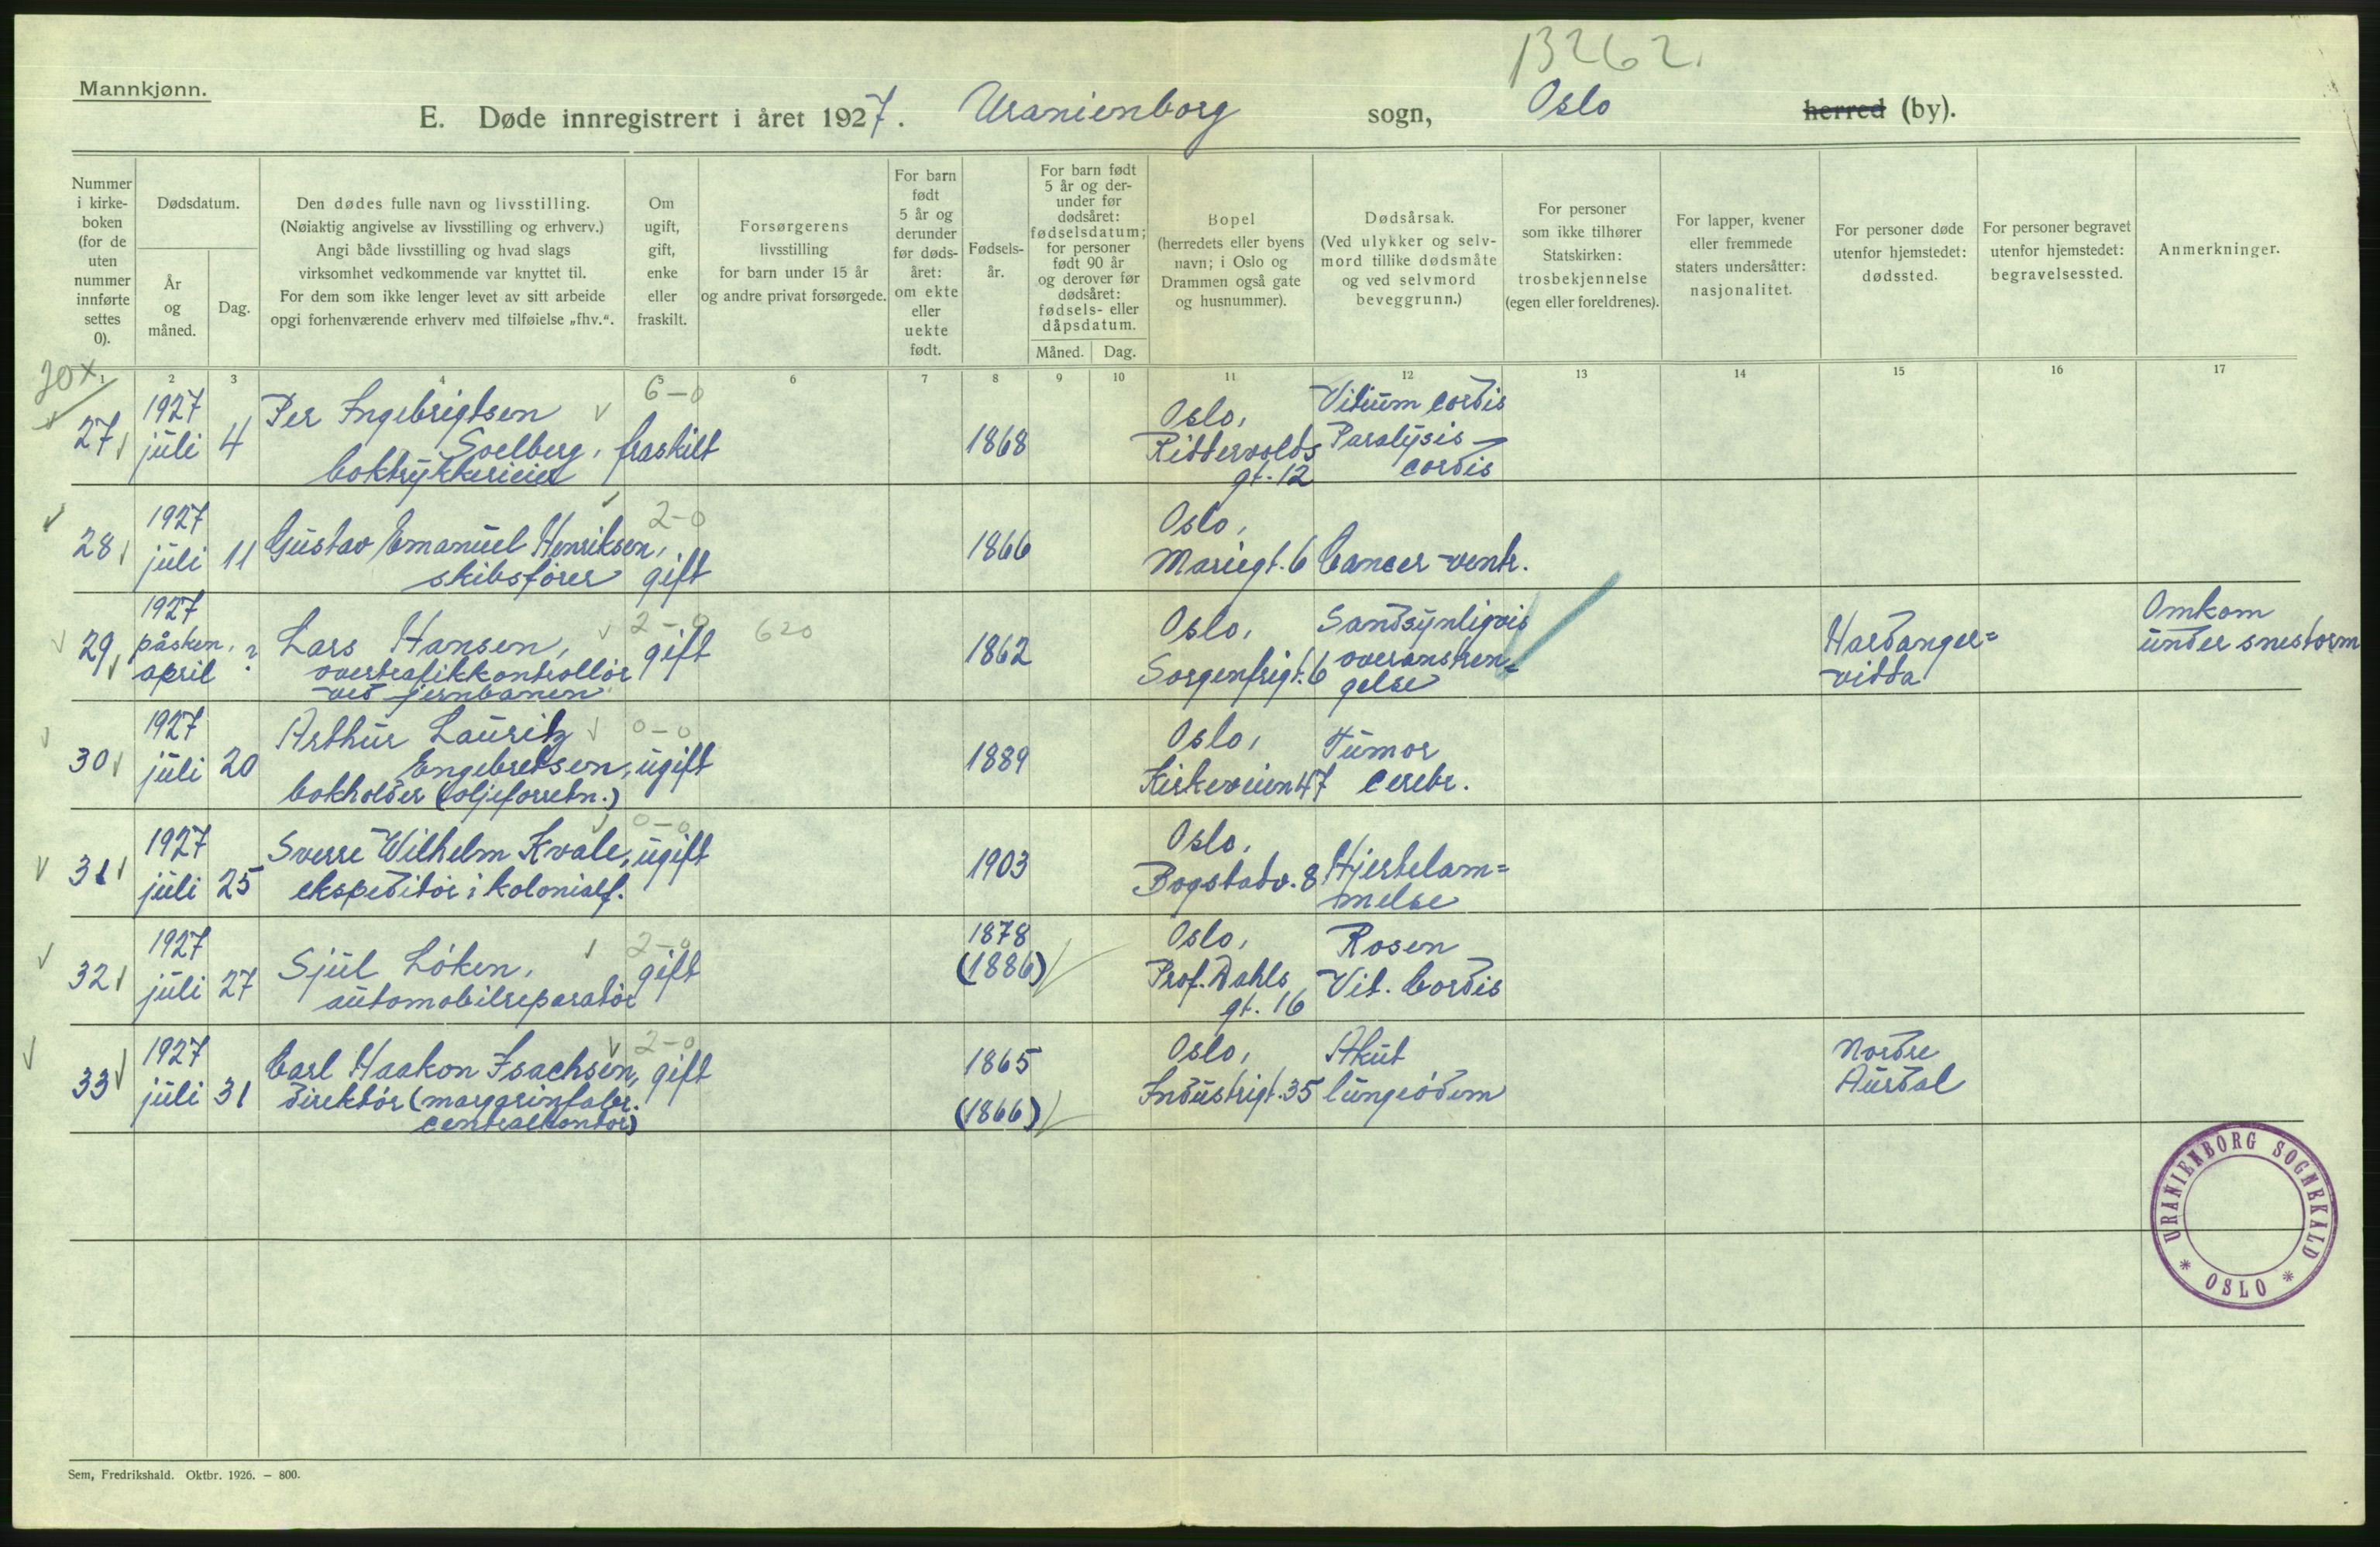 13262.
Mannkjønn.
E. Døde innregistrert i året 1927. Uranienborg sogn, Oslo herred (by).
Nummer i kirke-boken (for de uten nummer innførte settes 0).
Dødsdatum.
År og måned.
Dag.
Den dødes fulle navn og livsstilling.
(Nøiaktig angivelse av livsstilling og erhverv.)
Angi både livsstilling og hvad slags
virksomhet vedkommende var knyttet til.
For dem som ikke lenger levet av sitt arbeide
opgi forhenværende erhverv med tilføielse „fhv.“.
Om ugift, gift, enke eller fraskilt.
Forsørgerens livsstilling for barn under 15 år og andre privat forsørgede.
For barn født 5 år og derunder før døds-året: om ekte eller uekte født.
Fødsels-år.
For barn født 5 år og der-under før dødsåret: fødselsdatum; for personer født 90 år og derover før dødsåret: fødsels- eller dåpsdatum.
Måned. Dag.
Bopel (herredets eller byens navn; i Oslo og Drammen også gate og husnummer).
Dødsårsak. (Ved ulykker og selv-mord tillike dødsmåte og ved selvmord beveggrunn.)
For personer som ikke tilhører Statskirken: trosbekjennelse (egen eller foreldrenes).
For lapper, kvener eller fremmede staters undersåtter: nasjonalitet.
For personer døde utenfor hjemstedet: dødssted.
For personer begravet utenfor hjemstedet: begravelsessted.
Anmerkninger.
1 2 3 4 5 6 7 8 9 10 11 12 13 14 15 16 17
27 1927 juli 4 Per Ingebrigtsen
Soelberg,
boktrykkerieier
6-0
fraskilt 1868 Oslo,
Riddervolds
gt. 12
Vitium cordis
Paralysis
cordis
28 1927 juli 11 Gustav Emanuel Henriksen,
skibsfører
2-0
gift 1866 Oslo,
Mariegt. 6 Cancer ventr.
29 1927 påsken, april ? Lars Hansen,
overtrafikkontrollør
ved jernbanen
2-0
gift 620 1862 Oslo,
Sorgenfrigt. 6
Sandsynligvis
overanstren=
gelse
Hardanger=
vidda
Omkom
under snestorm
30 1927 juli 20 Arthur Lauritz
Engebretsen,
bokholder (oljeforretn.)
0-0
ugift 1889 Oslo,
Kirkeveien 47
Tumor
cerebr.
31 1927 juli 25 Sverre Wilhelm Kvale,
ekspeditør i kolonialf.
0-0
ugift 1903 Oslo,
Bogstadv. 8
Hjertelam=
melse
32 1927 juli 27 Sjul Løken,
automobilreparatør
2-0
gift 1878
(1886)
Oslo,
Prof. Dahls
gt. 16
Rosen
Vit. Cordis
33 1927 juli 31 Carl Haakon Isachsen,
direktør (margarinfabr.
centralkontor)
2-0
gift 1865
(1866)
Oslo,
Industrigt. 35
Akut
lungeødem
Nordre
Aurdal
URANIENBORG SOGNEKALD * OSLO *
Sem, Fredrikshald. Oktbr. 1926. – 800.